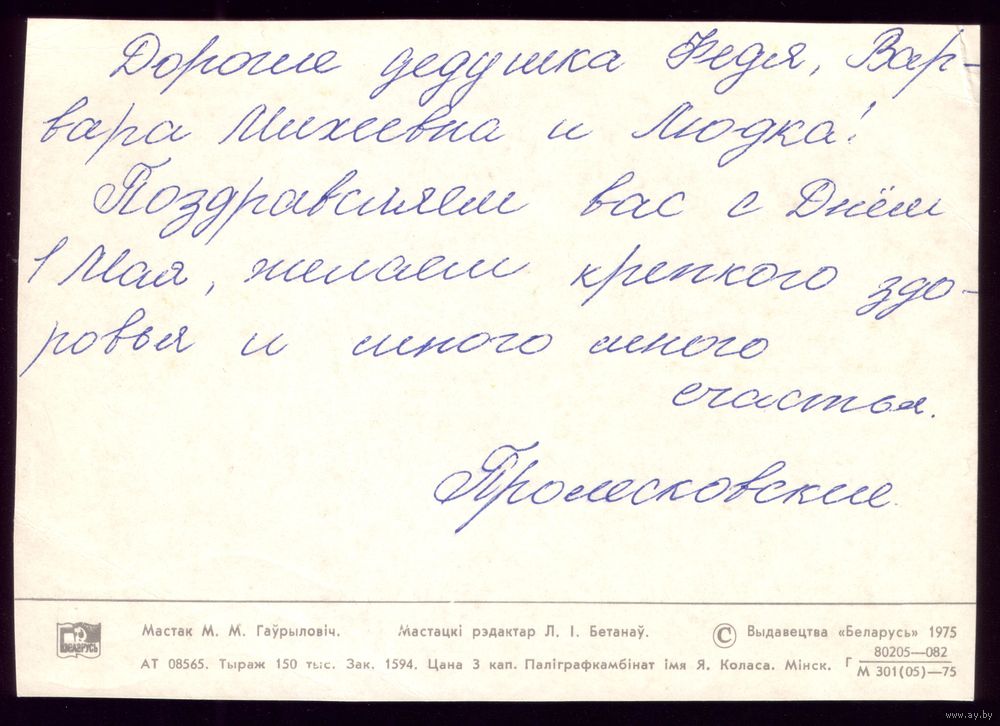 Дорогие дедушка Федя, Вар-
вара Михеевна и Людка!
Поздравляем вас с Днём
1 Мая, желаем крепкого здо-
ровья и много много
счастья.
Пролесковские.
БЕЛАРУСЬ
Мастак М. М. Гаўрыловіч. Мастацкі рэдактар Л. І. Бетанаў. © Выдавецтва «Беларусь» 1975
АТ 08565. Тыраж 150 тыс. Зак. 1594. Цана 3 кап. Паліграфкамбінат імя Я. Коласа. Мінск. Г 80205—082
М 301(05)—75
www.ay.by